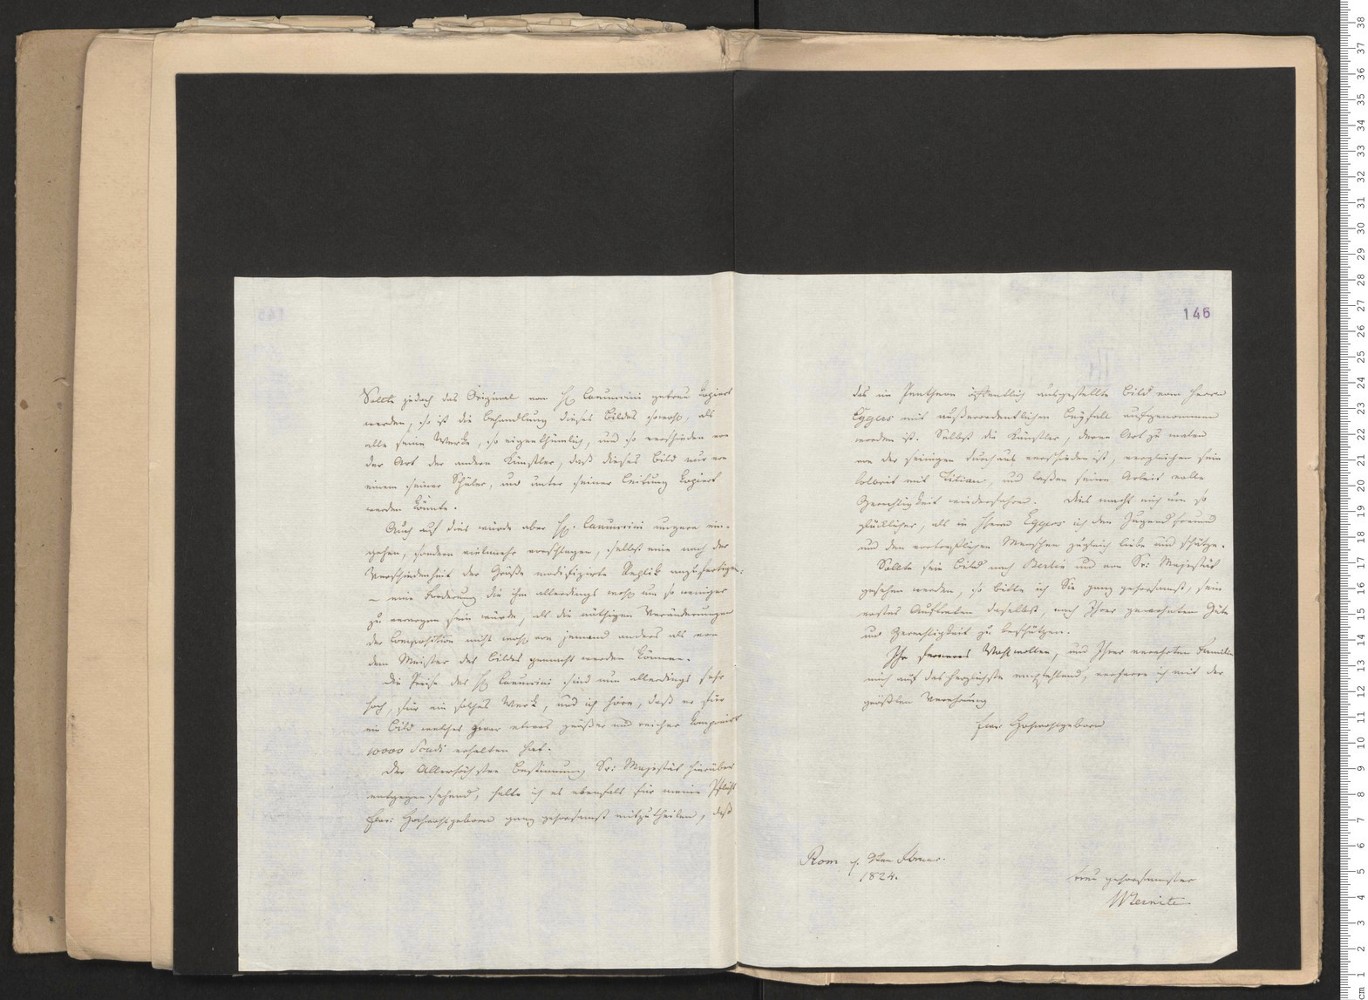 Sollte jedoch das Original von H. Camuccini getreu kopiert
werden, so ist die Behandlung dieses Bildes sowohl, als
alle seine Werke, so eigenthümlich, und so verschieden von
der Art der andern Künstler, daß dieses Bild nur von
einem seiner Schüler, und unter seiner Leitung kopiert
werden könnte.
Auch auf dies würde aber H. Camuccini ungern ein-
gehen, sondern vielmehr vorschlagen, selbst eine nach der
Verschiedenheit der Größe modifizirte Replik anzufertigen,
– eine Forderung die ihm allerdings wohl um so weniger
zu versagen sein würde, als die nöthigen Veränderungen
der Composition nicht wohl von jemand anders als von
dem Meister des Bildes gemacht werden können.
Die Preise des H. Camuccini sind nun allerdings sehr
hoch, für ein solches Werk, und ich höre, daß er für
ein Bild welches zwar etwas größer und reicher komponirt
10000 Scudi erhalten hat.
Der Allerhöchsten Bestimmung Sr: Majestät hierüber
entgegen sehend, halte ich es ebenfalls für meine Pflicht
Euer Hochwohlgeboren ganz gehorsamst mitzutheilen, daß
146
das im Pantheon öffentlich ausgestellte Bild von Herrn
Eggers mit außerordentlichem Beyfall aufgenommen
worden ist. Selbst die Künstler, deren Art zu malen
von der seinigen durchaus verschieden ist, vergleichen sein
Colorit mit Titian, und laßen seiner Arbeit volle
Gerechtigkeit wiederfahren. Dies macht mich um so
glücklicher, als in Herrn Eggers ich den Jugendfreund
und den vortrefflichen Menschen zugleich liebe und schätze.
Sollte sein Bild nach Berlin und von Sr: Majestät
gesehen werden, so bitte ich Sie ganz gehorsamst, sein
erstes Auftreten daselbst, nach Ihrer gewohnten Güte
und Gerechtigkeit zu beschützen.
Ihr ferneres Wohlwollen, und Ihrer verehrten Familie
mich auf das herzlichste empfehlend, verharre ich mit der
größten Verehrung
Euer Hochwohlgeboren
Rom
1824.
gehorsamster
WZernite